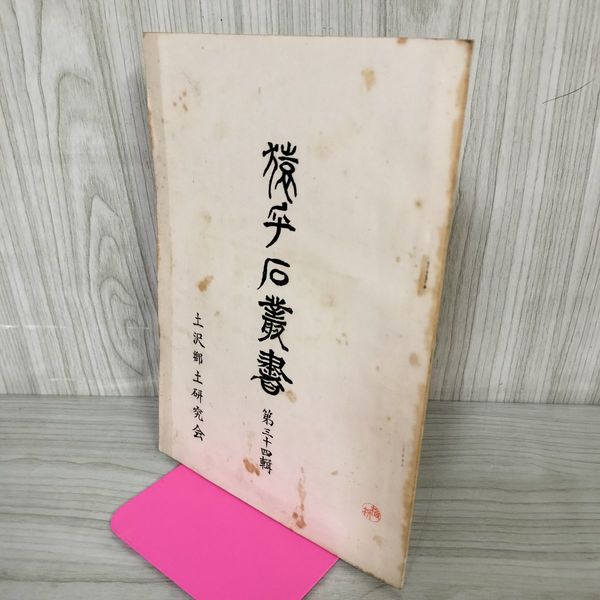 猿ヶ石叢書
第三十四輯
土沢郷土研究会